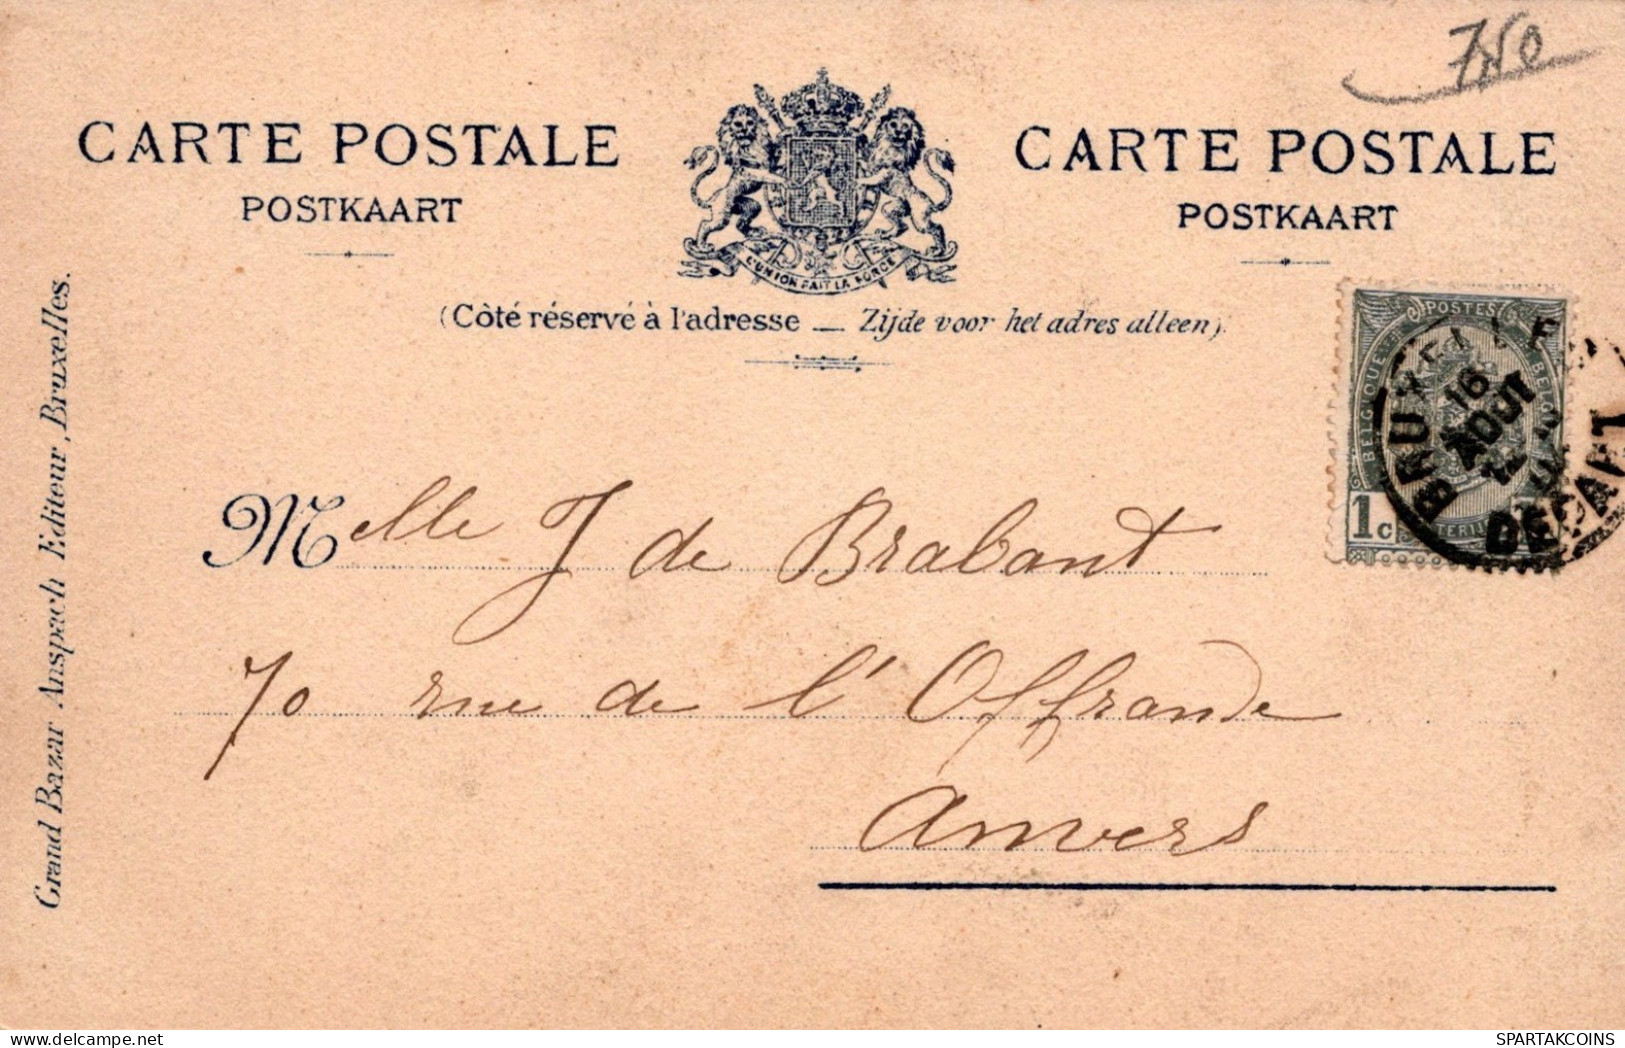 750
CARTE POSTALE
POSTKAART
L'UNION FAIT LA FORCE
CARTE POSTALE
POSTKAART
(Côté réservé à l'adresse — Zijde voor het adres alleen).
POSTES
BELGIQUE
BELGIË
1c
BRUXELLES
16
AOUT
DEPART
Grand Bazar Anspach Editeur, Bruxelles.
Melle J de Brabant
70 rue de l'Offrande
Anvers
SPARTAKCOINS